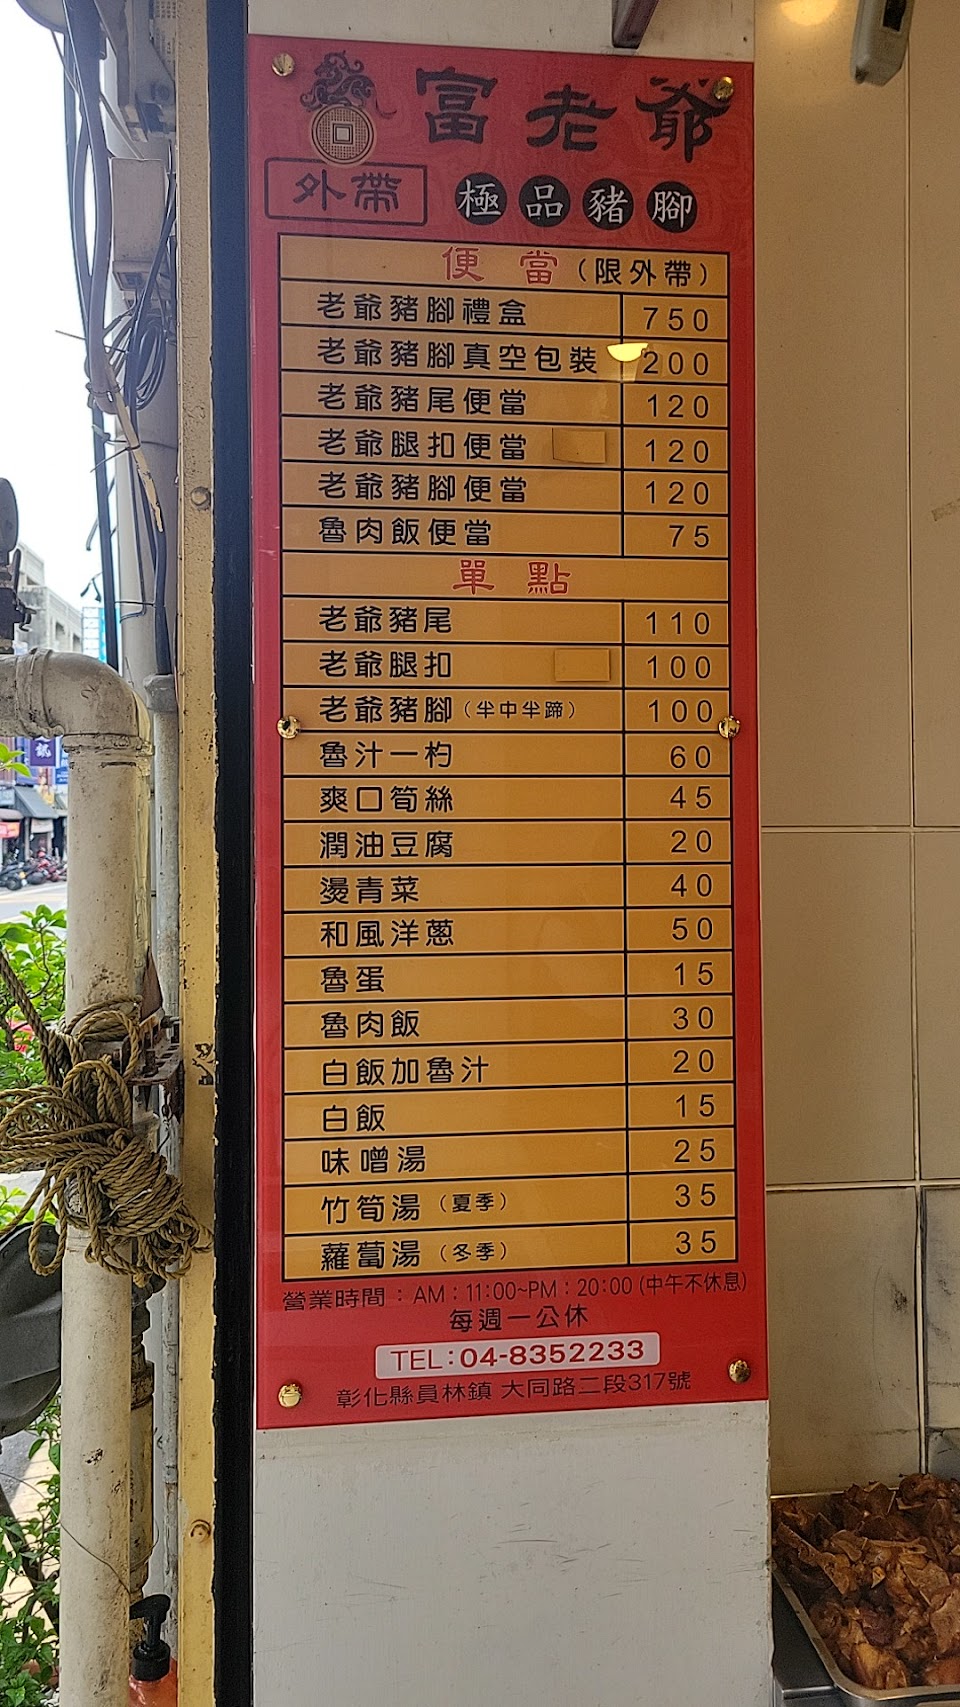 富老爺
外帶 極品豬腳
便當（限外帶）
老爺豬腳禮盒 750
老爺豬腳真空包裝 200
老爺豬尾便當 120
老爺腿扣便當 120
老爺豬腳便當 120
魯肉飯便當 75
單點
老爺豬尾 110
老爺腿扣 100
老爺豬腳（半中半蹄） 100
魯汁一杓 60
爽口筍絲 45
潤油豆腐 20
燙青菜 40
和風洋蔥 50
魯蛋 15
魯肉飯 30
白飯加魯汁 20
白飯 15
味噌湯 25
竹筍湯（夏季） 35
蘿蔔湯（冬季） 35
營業時間：AM：11:00~PM：20:00 (中午不休息)
每週一公休
TEL:04-8352233
彰化縣員林鎮 大同路二段317號